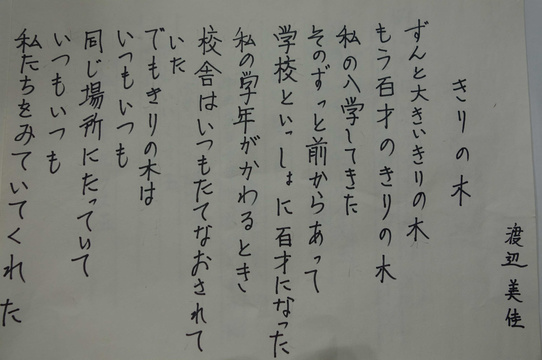 渡辺美佳
きりの木
ずんと大きいきりの木
もう百才のきりの木
私の入学してきた
そのずっと前からあって
学校といっしょに百才になった
私の学年がかわるとき
校舎はいつもたてなおされて
いた
でもきりの木は
いつもいつも
同じ場所にたっていて
いつもいつも
私たちをみていてくれた